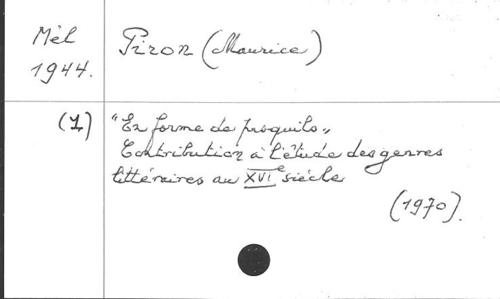 Mél Piron (Maurice)
1944.
(1) "En forme de pasquils"
Contribution à l'étude des genres
littéraires au XVIe siècle
(1970).